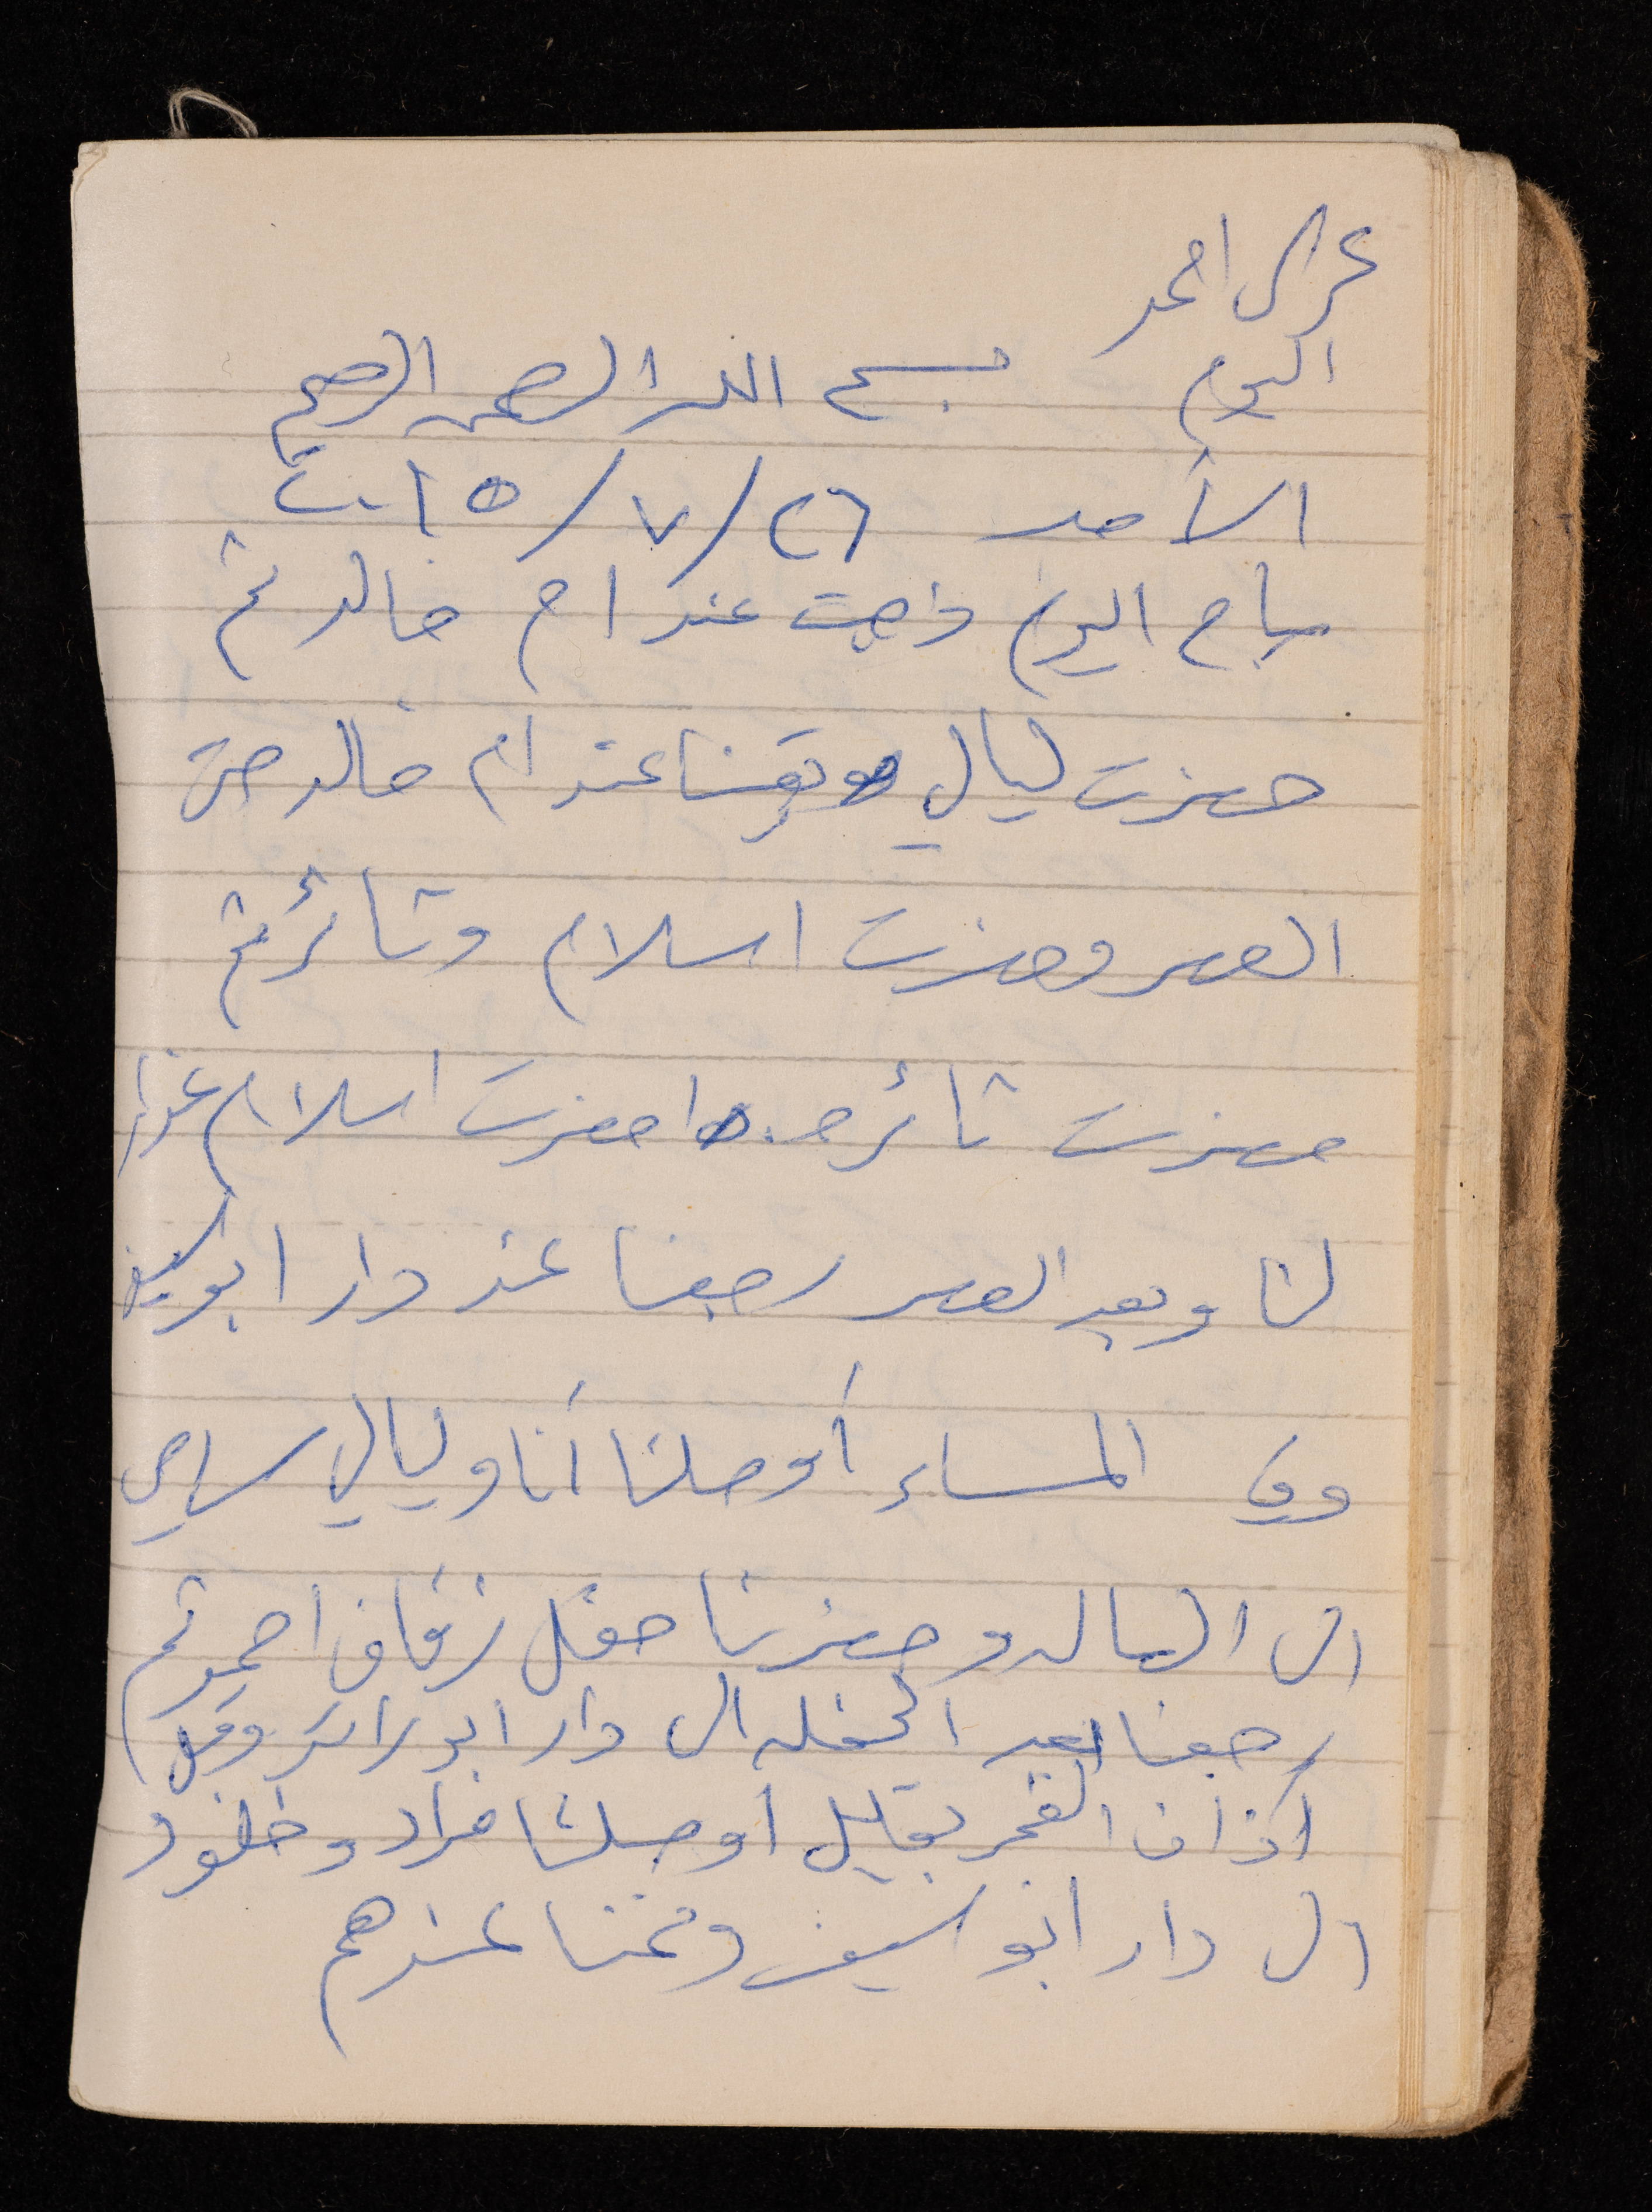 عزال احمد
اليوم بسم الله الرحمن الرحيم
الأحد ٢٦/٧/٢٠١٥
صباح اليوم ذهبت عند ام خالد ثم
حضرت ليال وبقينا عند ام خالد حتى
العصر وحضرت اسلام وثائر ثم
حضرت ثائره احضرت اسلام غداء
لنا وبعد العصر رجعنا عند دار ابو سيف
وفي المساء أوصلنا أنا وليالي سامي
الى الصاله وحضرنا حفل زفاف احمد ثم
رجعنا بعد الحفله الى دار ابو رائد وقبل
اذان الفجر بقليل أوصلنا مراد وخلود
الى دار ابو سيف ونمنا عندهم